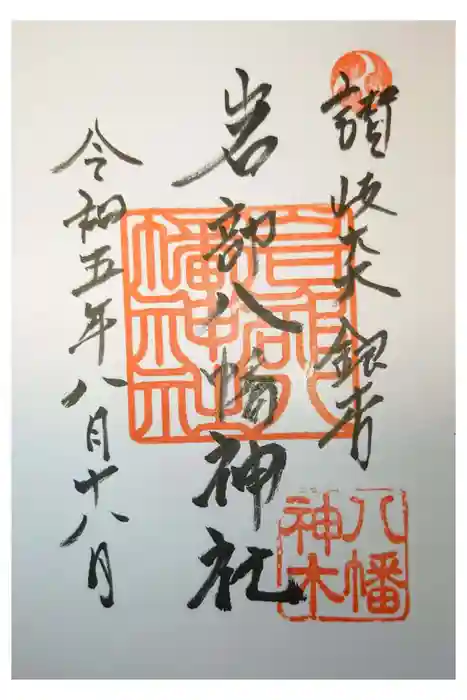 讃岐大銀杏
岩部八幡神社
令和五年八月十八日
岩部八
幡神社
八幡
神木